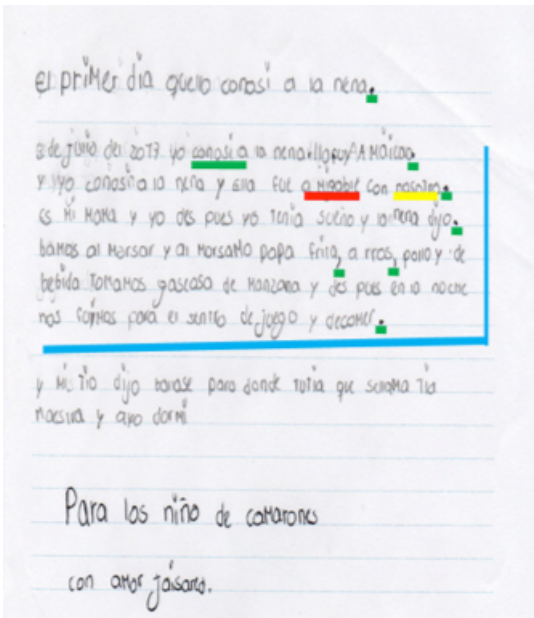 el primer dia que llo conosi a la nena.
3 de junio del 2017 yo conosi a la nena llo fuy A MAicao.
y llo conosi a la neña y ella fue a mirable con nosotro.
es mi mama y yo des pues yo tenia sueño y la nena dijo.
bamos al Marsar y al morsamo papa frita, a rros, pollo y de
bebida tomamos gaseosa de manzana y des pues en la noche
nos fuimos para el sentro de juego y decomer.
y mis tio dijo para donde tutia que
maesira y ayo dormi
Para los niño de camarones
con amor